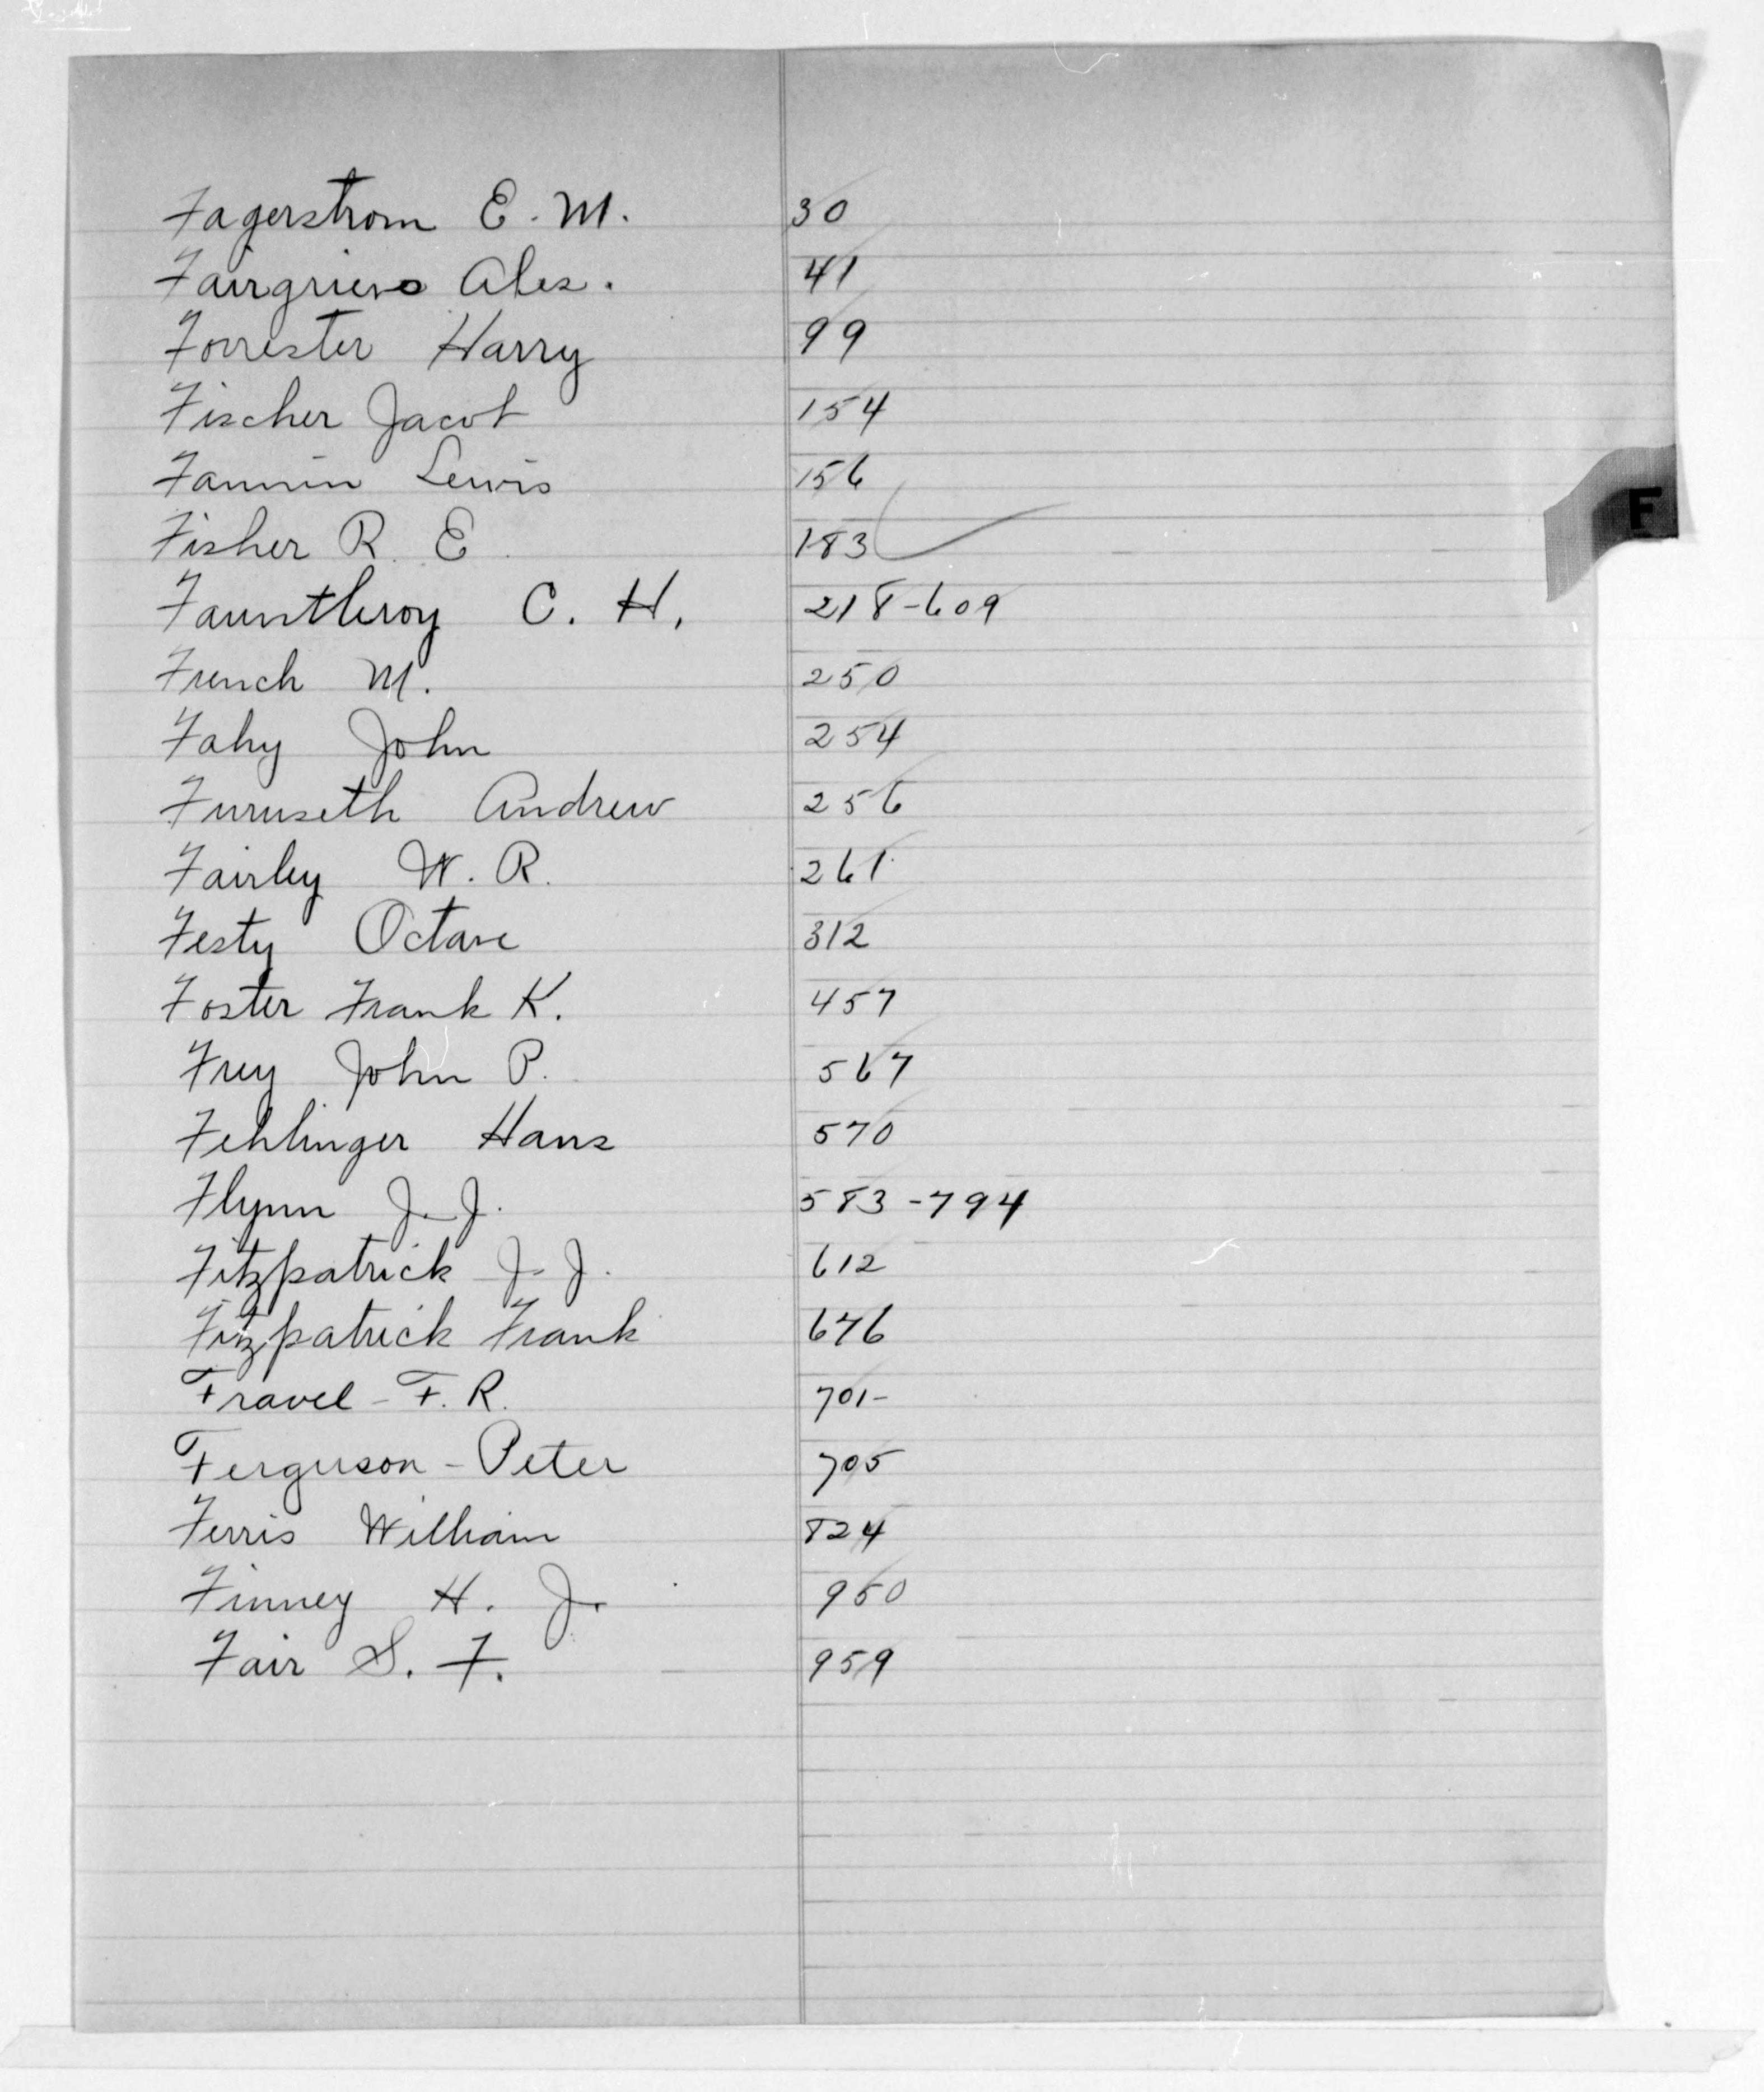 Fagerstrom E. M. 30
Fairgrieve Alex. 41
Forrester Harry 99
Fischer Jacob 154
Fannin Lewis 156
Fisher R. E. 183
F
Fauntleroy C. H. 218-609
French M. 250
Fahy John 254
Furuseth Andrew 256
Fairley W. R. 261
Festy Octave 312
Foster Frank K. 457
Frey John P. 567
Fehlinger Hans 570
Flynn J. J. 583-794
Fitzpatrick J. J. 612
Fitzpatrick Frank 676
Fravel - F. R. 701-
Ferguson - Peter 705
Ferris William 824
Finney H. J. 950
Fair S. F. 959